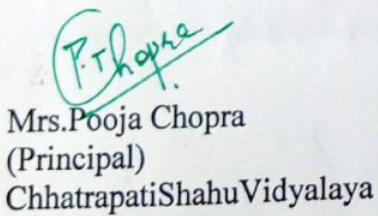 P.T Chopra
Mrs.Pooja Chopra
(Principal)
ChhatrapatiShahuVidyalaya